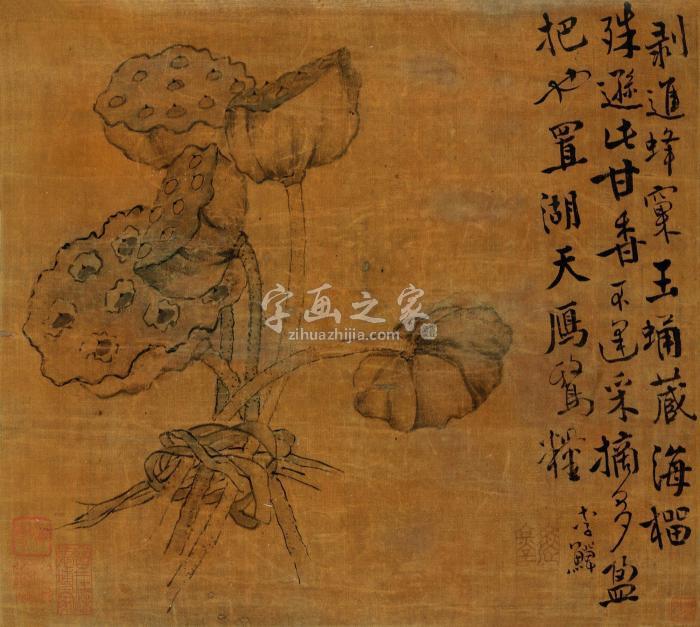 剥蜂窠玉蛹藏海榴
殊遜此甘香不采摘多盈
把也置湖天鴈鶩糧
李鱓
字画之家
zihuazhijia.com